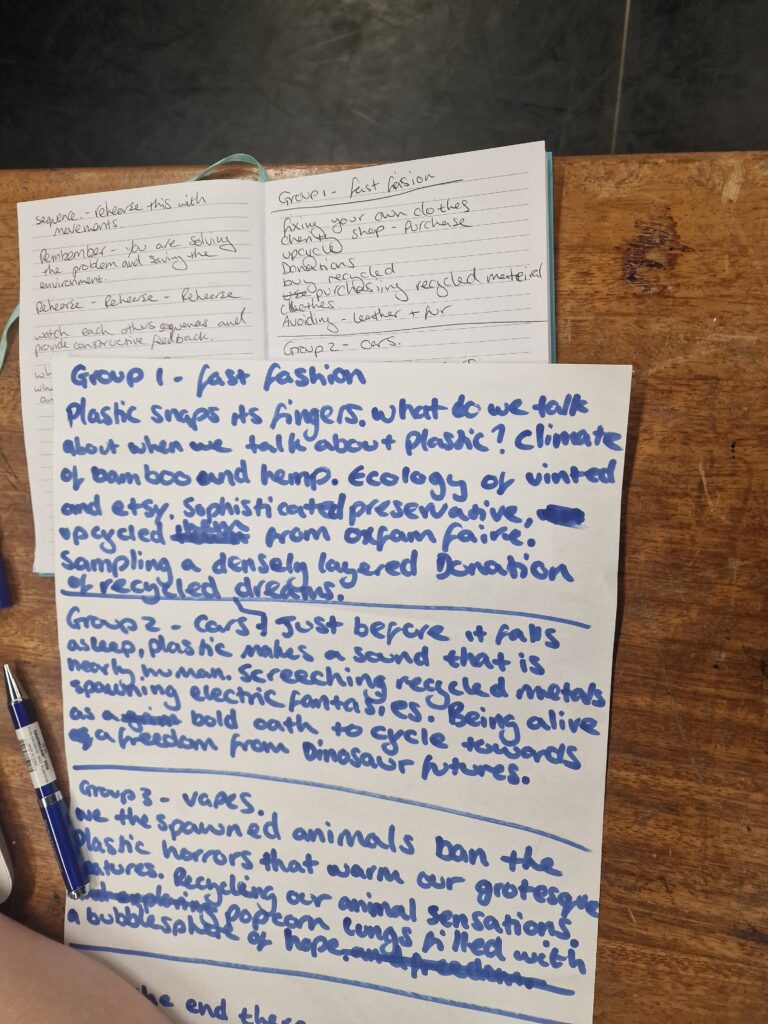 sequence. - rehearse this with
movements.
Rembember - you are solving
the problem and saving the
environment.
Rehearse - Rehearse - Rehearse
watch each others sequences and
provide constructive feedback.
Group 1 - fast fasion
fixing your own clothes
shop - Purchase
upcycle
Donations
buy recycled
purchasing recycled material
clothes.
Avoiding - leather + fur
Group 2 - cars.
Group 1 - fast fashion
Plastic snaps its fingers. what do we talk
about when we talk about plastic? climate
of bamboo and hemp. Ecology of vinted
and etsy. Sophisticated preservative,
upcycled from oxfam faire.
Sampling a densely layered Donation
of recycled dreams.
Group 2 - cars. Just before it falls
asleep, plastic makes a sound that is
nearly human. Screeching recycled metals
spawning electric fantasies. Being alive
as a bold oath to cycle towards
a freedom from Dinosaur futures.
Group 3 - vapes.
we the spawned animals ban the
plastic horrors that warm our grotesque
natures. Recycling our animal sensations.
popcorn lungs filled with
a bubblesphere of hope and freedom.
the end there